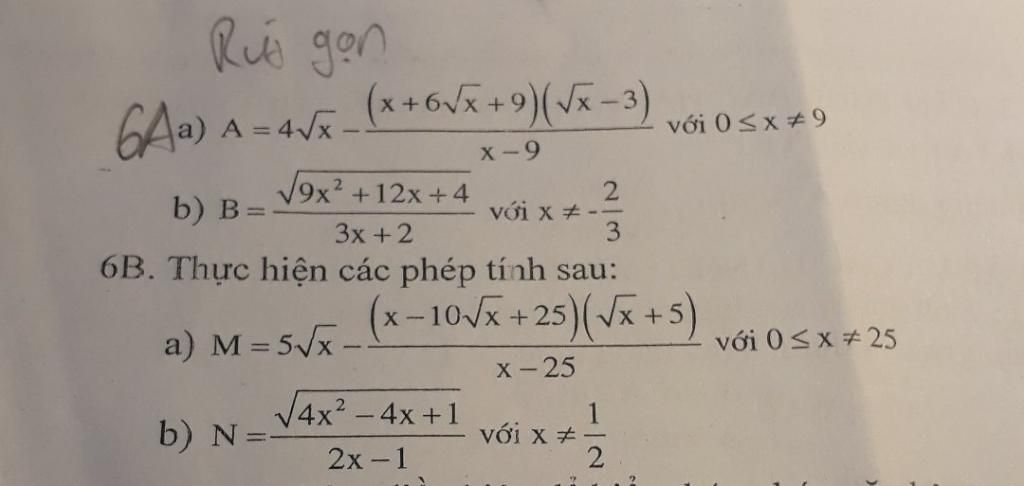 Rút gọn
6A a) A = 4√x − (x + 6√x + 9)(√x − 3) / (x − 9) với 0 ≤ x ≠ 9
b) B = √(9x² + 12x + 4) / (3x + 2) với x ≠ -2/3
6B. Thực hiện các phép tính sau:
a) M = 5√x − (x − 10√x + 25)(√x + 5) / (x − 25) với 0 ≤ x ≠ 25
b) N = √(4x² − 4x + 1) / (2x − 1) với x ≠ 1/2